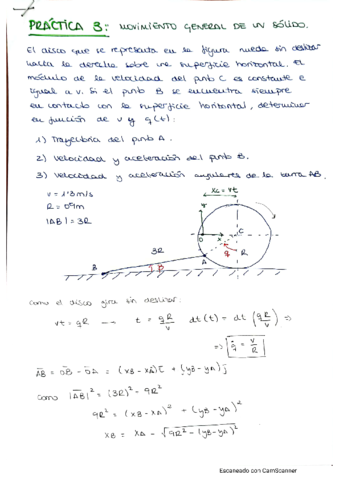 PRÁCTICA 3: MOVIMIENTO GENERAL DE UN SÓLIDO.
El disco que se representa en la figura rueda sin deslizar
hacia la derecha sobre una superficie horizontal. El
módulo de la velocidad del punto C es constante e
igual a v. Si el punto B se encuentra siempre
en contacto con la superficie horizontal, determinar
en función de v y φ(t):
1) Trayectoria del punto A.
2) Velocidad y aceleración del punto B.
3) Velocidad y aceleración angulares de la barra AB.
v = 1'3 m/s
R = 0'9 m
|AB| = 3R
xc = vt
O
x
C
φ
R
A
3R
B
β
Como el disco gira sin deslizar:
vt = φR → t = φR/v dt(t) = dt(φR/v) ⇒
⇒ φ̇ = v/R
AB = OB - OA = (xB - xA)i + (yB - yA)j
como |AB|² = (3R)² = 9R²
9R² = (xB - xA)² + (yB - yA)²
xB = xA - √(9R² - (yB - yA)²)
Escaneado con CamScanner